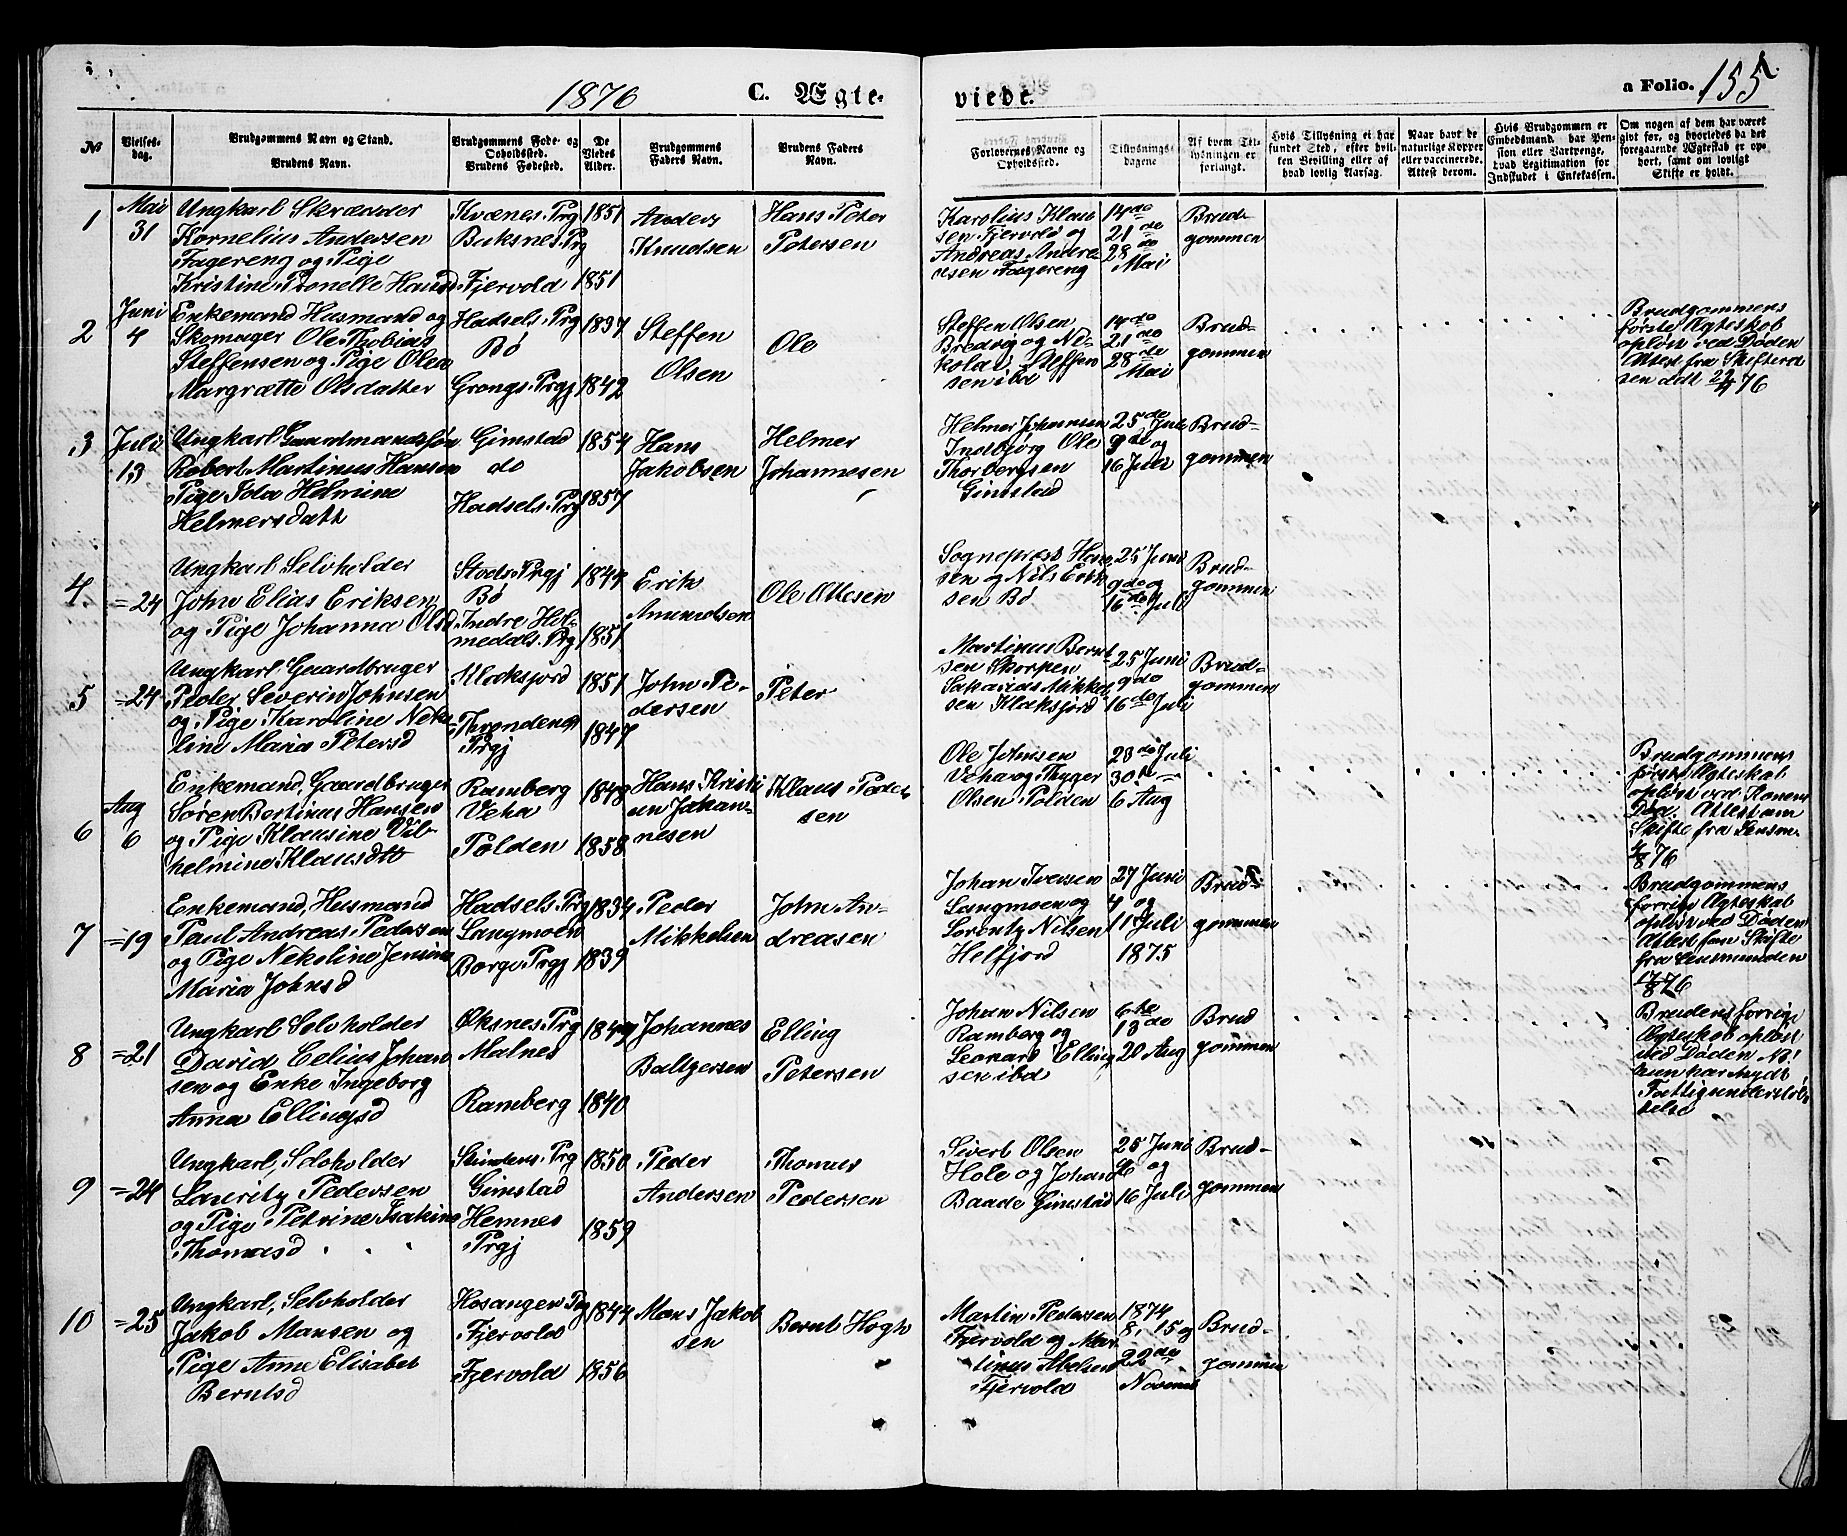 1876 C. Ægte-
viede.
a Folio. 155
№
Vielses-
dag.
Brudgommens Navn og Stand.
Brudens Navn.
Brudgommens Føde- og
Opholdssted.
Brudens Fødested.
De
Viedes
Alder.
Brudgommens
Faders Navn.
Brudens Faders
Navn.
Forlovernes Navne og
Opholdssted.
Tillysnings-
dagene
Af hvem Til-
lysningen er
forlangt.
Hvis Tillysning ei har
fundet Sted, efter hvil-
ken Bevilling eller af
hvad lovlig Aarsag.
Naar havt de
naturlige Kopper
eller vaccinerede.
Attest derom.
Hvis Brudgommen er
Embedsmand, har Pen-
sion eller Vartpenge,
hvad Legitimation for
Indskudet i Enkekassen.
Om nogen af dem har været
gift før, og hvorledes da det
foregaaende Ægteskab er op-
hørt, samt om lovligt
Skifte er holdt.
1
Mai
31
Ungkarl Skrædder
Kornelius Andersen
Fagereng og Pige
Kristine Pronelle Hansd
Kvænes Prg
Buksnes Prg
Fjervold
1851
1851
Anders
Knudsen
Hans Peter
Petersen
Karolius Klau
sen Fjervold og
Andreas Andre-
asen Fagereng
14de
21de
28de
Mai
Brud-
gommen
2
Juni
4
Enkemand Husmand og
Skomager Ole Thobias
Steffensen og Pige Olea
Margrætte Olsdatter
Hadsels Prg
Bø
Grongs Prgj
1837
1842
Steffen
Olsen
Ole
Steffen Olsen
Bredvig og Ne-
kolai Steffen
sen ibd
14de
21de
28de
Mai
Brud-
gommen
Brudgommens
første Ægteskab
opløst ved Døden
Attest fra Skifteret
ten ddt 22/4 76
3
Juli
13
Ungkarl Gaardmandssøn
Robert Martinus Hansen
Pige Ida Helmine
Helmersdatt
Gimstad
do
Hadsels Prg
1854
1857
Hans
Jakobsen
Helmer
Johannesen
Helmer Johansen
Indbjørg Ole
Thorbergsen
Gimstad
25de Juni
9de og
16 Juli
Brud-
gommen
4
=24
Ungkarl Selvholder
John Elias Eriksen
og Pige Johanna Olsd
Stods Prgj
Bø
Indre Hol-
medals Prg
1844
1851
Erik
Amundsen
Ole Ottesen
Sogneprest Han-
sen og Nils Erik
sen Bø
25 Juni
9de og
16de Juli
Brud-
gommen
5
=24
Ungkarl Gaardbruger
Peder Severin Johnsen
og Pige Karoline Neko
line Maria Petersd
Klaksjord
Throndenes
Prgj
1851
1847
John Pe-
dersen
Peter
Martinus Bernt
sen Skorpen
Sakarias Mikkel
sen Klaksjord
25 Juni
9de
16de Juli
Brud-
gommen
6
Aug
6
Enkemand, Gaardbruger
Søren Bertinus Hansen
og Pige Klausine Vil-
helmine Klausdtt
Ramberg
Veha
Polden
1848
1858
Hans Kristi
an Johan-
nesen
Klaus Peder
sen
Ole Johnsen
Veha og Thyger
Olsen Polden
23de Juli
30te —
6 Aug
Brudgommens
første Ægteskab
opløst ved Konens
Død. Attest om
Skifte fra Lensm.
4/8 76
7
=19
Enkemand, Husmand
Paul Andreas Pedersen
og Pige Nekoline Jensine
Maria Johnsd
Hadsels Prg
Langmoen
Borge Prgj
1834
1839
Peder
Mikkelsen
John An-
dreasen
Johan Iversen
Langmoen og
Lorentz Nilsen
Helfjord
27 Juni
4 og
11 Juli
1875
Brud-
gommen
Brudgommens
forrige Ægteskab
opløst ved Døden
Attest om Skifte
fra Lensmanden
17/8 76
8
=21
Ungkarl Selvholder
David Celius Johan
sen og Enke Ingeborg
Anna Ellingsd
Øksnes Prg
Malnes
Ramberg
1849
1840
Johannes
Baltzersen
Elling
Petersen
Johan Nilsen
Ramberg og
Leonard Elling
sen ibd
6te
13de
20 Aug
Brud
gommen
Brudens forrige
Ægteskab opløst
ved Døden NB!
hun har nydt
Fattigunderstøt-
telse
9
=24
Ungkarl, Selvholder
Lauritz Pedersen
og Pige Petrine Isakine
Thomasd
Gimstad
Hemnes
Prgj
1850
1859
Peder
Andersen
Thomas
Pedersen
Sivert Olsen
Hole og Johan
Baade Gimstad
25 Juni
og
16 Juli
Brud-
gommen
10
=25
Ungkarl, Selvholder
Jakob Mansen og
Pige Anne Elisabet
Berntsd
Hosanger Prg
Fjervold
Fjervold
1844
1856
Mons Jakob
sen
Bernt Hogh
Martin Pedersen
Fjervold og Mar
tinus Abelsen
Fjervold
1874
8, 15 og
22de
Novemb
Brud-
gommen